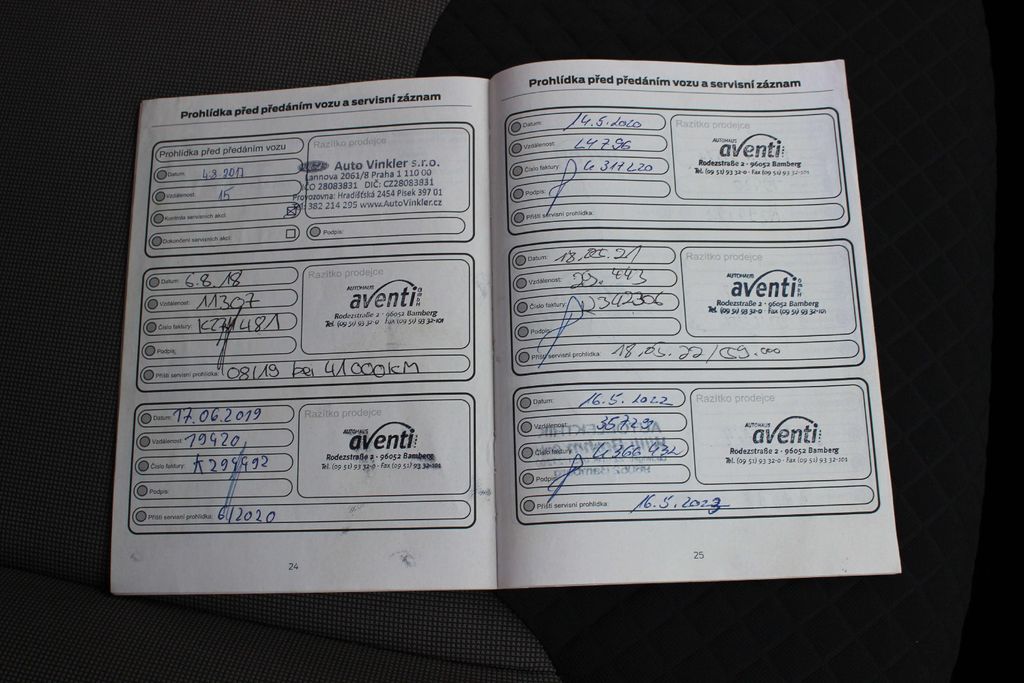 Prohlídka před předáním vozu a servisní záznam
Prohlídka před předáním vozu
Datum: 4.8.2017
Vzdálenost: 15
Kontrola servisních akcí:
Dokončení servisních akcí:
Razítko prodejce
Auto Vinkler s.r.o.
Lannova 2061/8 Praha 1 110 00
IČO 28083831 DIČ: CZ28083831
Provozovna: Hradišťská 2454 Písek 397 01
382 214 295 www.AutoVinkler.cz
Podpis:
Datum: 6.8.18
Vzdálenost: 11307
Číslo faktury:
Podpis:
Příští servisní prohlídka: 08/19 bei 41000KM
Razítko prodejce
AUTOHAUS
aventi GMBH
Rodezstraße 2 · 96052 Bamberg
Tel. (09 51) 93 32-0 · Fax (09 51) 93 32-101
Datum: 17.06.2019
Vzdálenost: 19420
Číslo faktury: K299492
Podpis:
Příští servisní prohlídka: 6/2020
Razítko prodejce
AUTOHAUS
aventi GMBH
Rodezstraße 2 · 96052 Bamberg
Tel. (09 51) 93 32-0 · Fax (09 51) 93 32-101
24
Prohlídka před předáním vozu a servisní záznam
Datum: 14.5.2020
Vzdálenost: 24796
Číslo faktury: 317220
Podpis:
Příští servisní prohlídka:
Razítko prodejce
AUTOHAUS
aventi GMBH
Rodezstraße 2 · 96052 Bamberg
Tel. (09 51) 93 32-0 · Fax (09 51) 93 32-101
Datum: 18.05.21
Vzdálenost: 29.443
Číslo faktury: 342306
Podpis:
Příští servisní prohlídka: 18.05.22/59.000
Razítko prodejce
AUTOHAUS
aventi GMBH
Rodezstraße 2 · 96052 Bamberg
Tel. (09 51) 93 32-0 · Fax (09 51) 93 32-101
Datum: 16.5.2022
Vzdálenost: 35729
Číslo faktury: 366932
Podpis:
Příští servisní prohlídka: 16.5.2023
Razítko prodejce
AUTOHAUS
aventi GMBH
Rodezstraße 2 · 96052 Bamberg
Tel. (09 51) 93 32-0 · Fax (09 51) 93 32-101
25